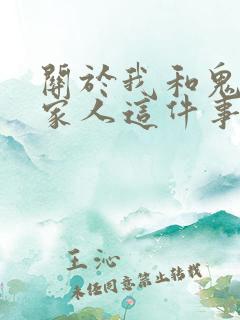 關於我和鬼
家人這件事
王沁
未經同意禁止轉載